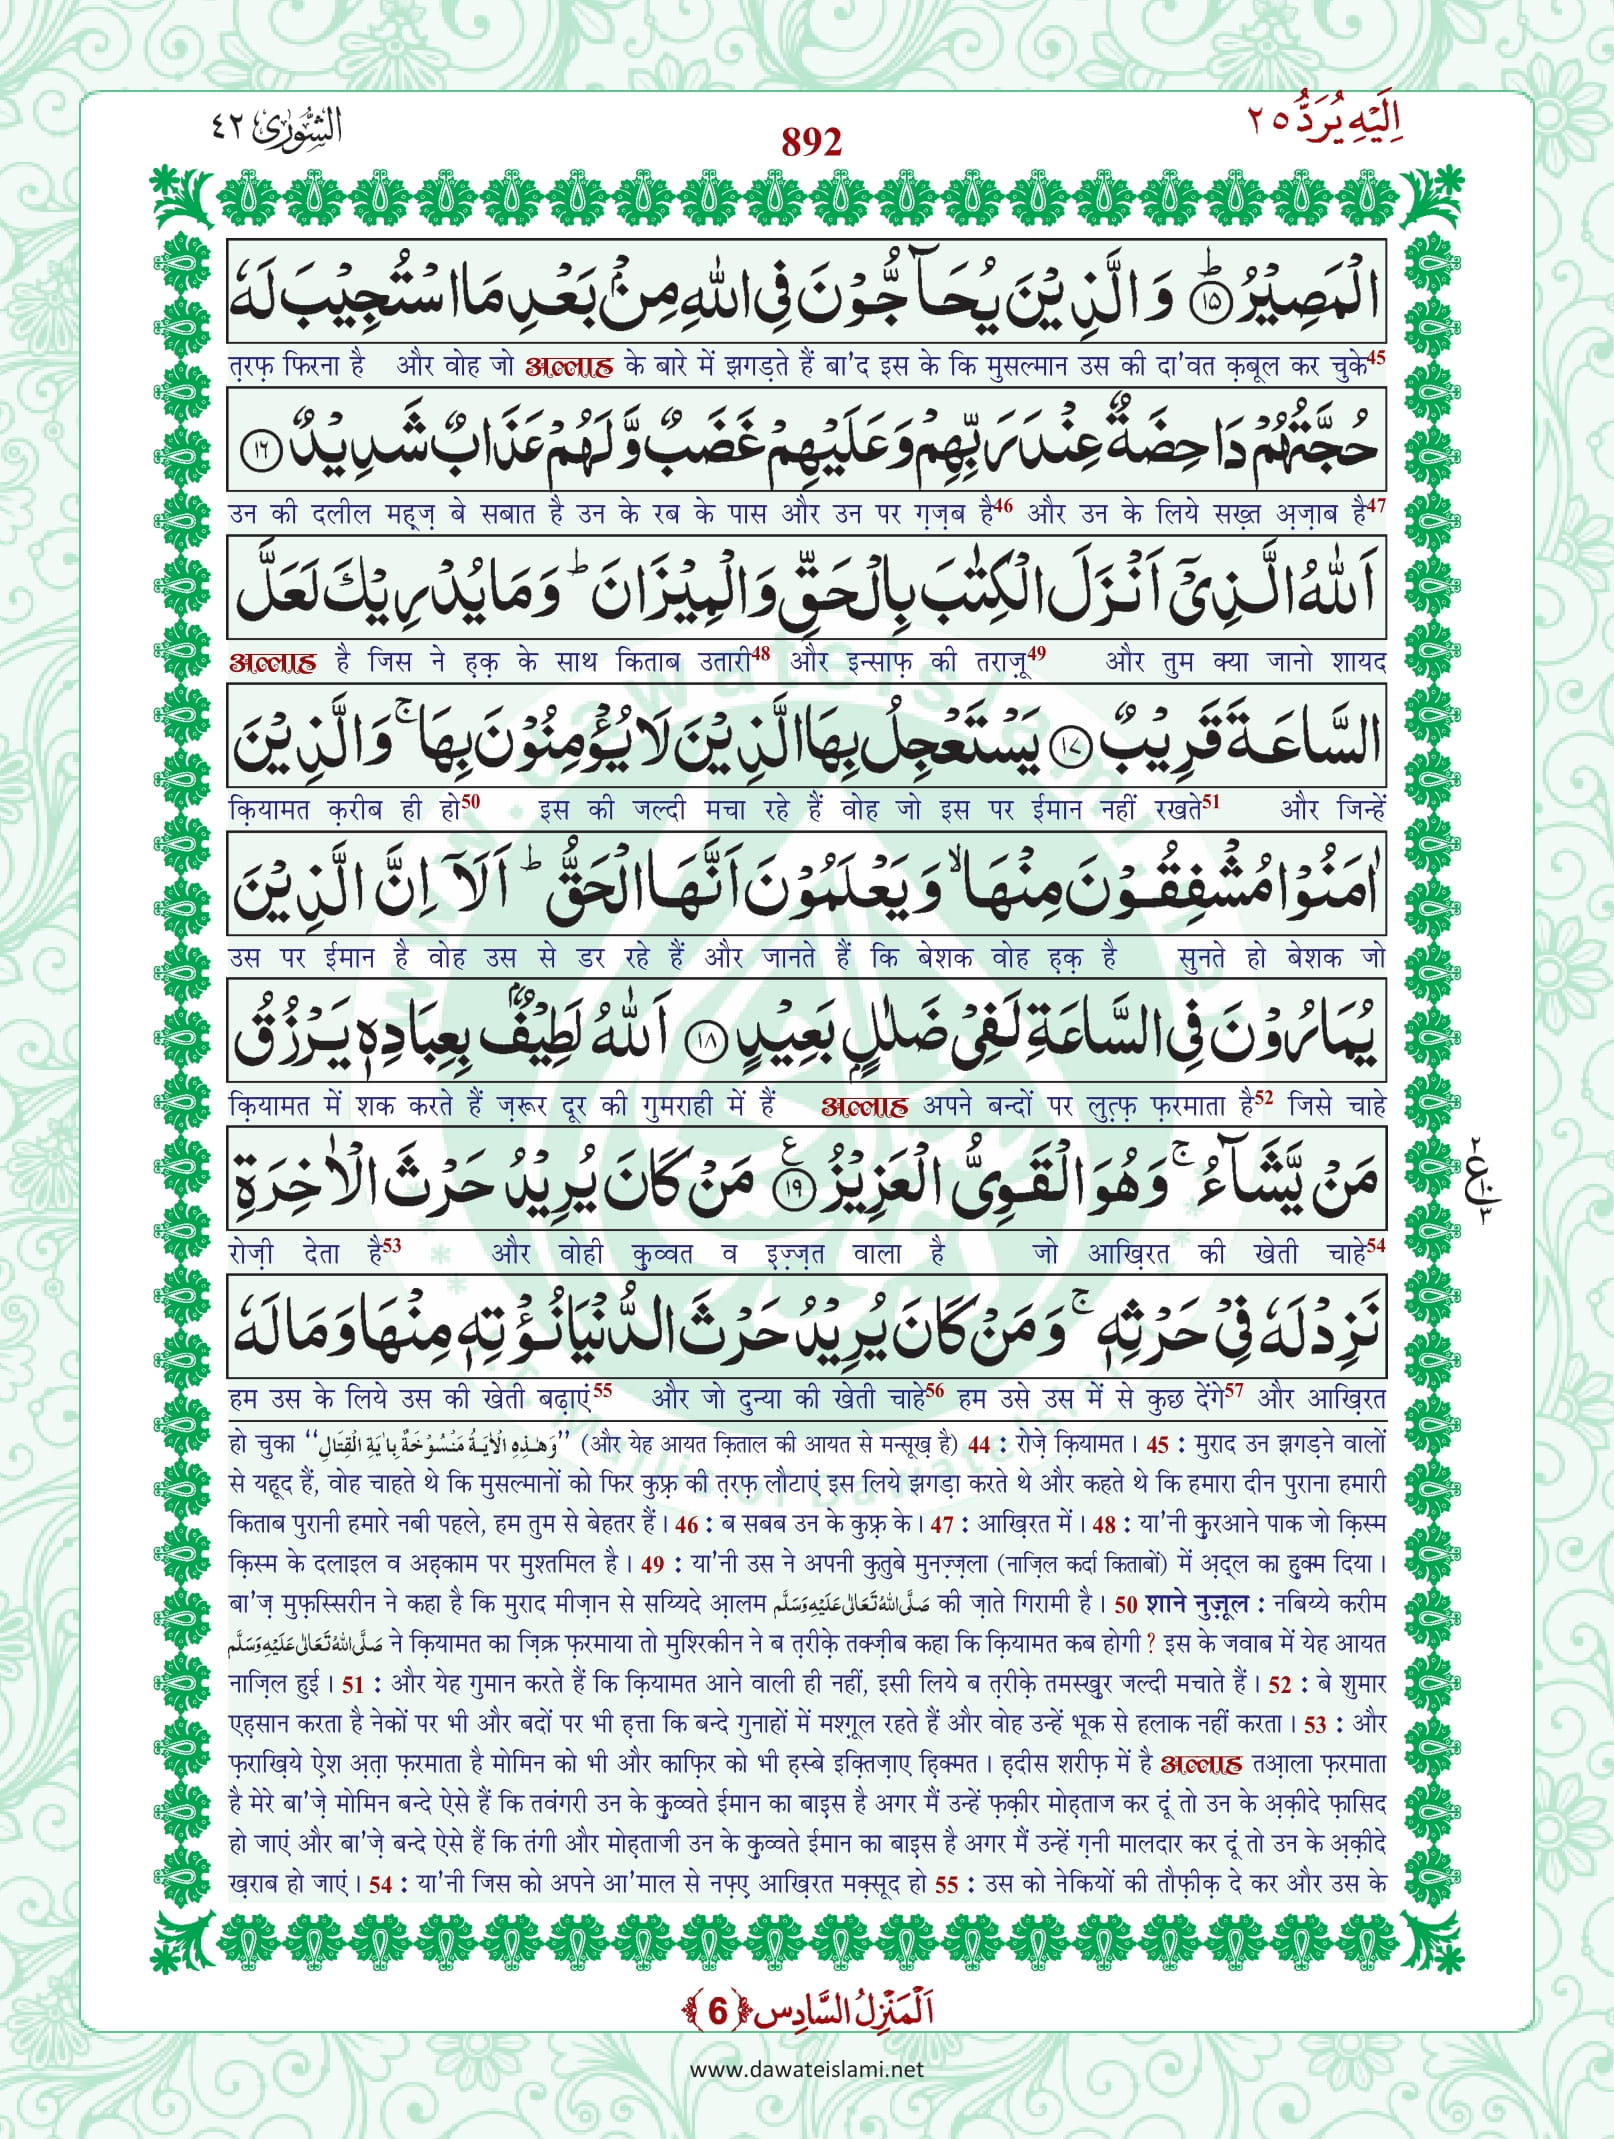 اِلَيْهِ يُرَدُّ ٢٥
892
الشُّوْرٰی ٤٢
الْمَصِيْرُ ؕ﴿۱۵﴾ وَ الَّذِيْنَ يُحَآجُّوْنَ فِی اللّٰهِ مِنْۢ بَعْدِ مَا اسْتُجِيْبَ لَهٗ
त़रफ़ फिरना है और वोह जो अल्लाह के बारे में झगड़ते हैं बा'द इस के कि मुसल्मान उस की दा'वत क़बूल कर चुके45
حُجَّتُهُمْ دَاحِضَةٌ عِنْدَ رَبِّهِمْ وَ عَلَيْهِمْ غَضَبٌ وَّ لَهُمْ عَذَابٌ شَدِيْدٌ ﴿۱۶﴾
उन की दलील मह़्ज़ बे सबात है उन के रब के पास और उन पर ग़ज़ब है46 और उन के लिये सख़्त अ़ज़ाब है47
اَللّٰهُ الَّذِیْۤ اَنْزَلَ الْكِتٰبَ بِالْحَقِّ وَ الْمِيْزَانَ ؕ وَ مَا يُدْرِيْكَ لَعَلَّ
अल्लाह है जिस ने ह़क़ के साथ किताब उतारी48 और इन्साफ़ की तराज़ू49 और तुम क्या जानो शायद
السَّاعَةَ قَرِيْبٌ ﴿۱۷﴾ يَسْتَعْجِلُ بِهَا الَّذِيْنَ لَا يُؤْمِنُوْنَ بِهَا ۚ وَ الَّذِيْنَ
क़ियामत क़रीब ही हो50 इस की जल्दी मचा रहे हैं वोह जो इस पर ईमान नहीं रखते51 और जिन्हें
اٰمَنُوْا مُشْفِقُوْنَ مِنْهَا ۙ وَ يَعْلَمُوْنَ اَنَّهَا الْحَقُّ ؕ اَلَاۤ اِنَّ الَّذِيْنَ
उस पर ईमान है वोह उस से डर रहे हैं और जानते हैं कि बेशक वोह ह़क़ है सुनते हो बेशक जो
يُمَارُوْنَ فِی السَّاعَةِ لَفِیْ ضَلٰلٍۭ بَعِيْدٍ ﴿۱۸﴾ اَللّٰهُ لَطِيْفٌۢ بِعِبَادِهٖ يَرْزُقُ
क़ियामत में शक करते हैं ज़रूर दूर की गुमराही में हैं अल्लाह अपने बन्दों पर लुत़्फ़ फ़रमाता है52 जिसे चाहे
مَنْ يَّشَآءُ ۚ وَ هُوَ الْقَوِیُّ الْعَزِيْزُ ﴿۱۹﴾ع مَنْ كَانَ يُرِيْدُ حَرْثَ الْاٰخِرَةِ
٢ ع ١٠ ٣
रोज़ी देता है53 और वोही क़ुव्वत व इ़ज़्ज़त वाला है जो आख़िरत की खेती चाहे54
نَزِدْ لَهٗ فِیْ حَرْثِهٖ ۚ وَ مَنْ كَانَ يُرِيْدُ حَرْثَ الدُّنْيَا نُؤْتِهٖ مِنْهَا وَ مَا لَهٗ
हम उस के लिये उस की खेती बढ़ाएं55 और जो दुन्या की खेती चाहे56 हम उसे उस में से कुछ देंगे57 और आख़िरत
हो चुका ‘‘وَهٰذِهِ الْاٰيَةُ مَنْسُوْخَةٌ بِاٰيَةِ الْقِتَالِ’’ (और येह आयत क़िताल की आयत से मन्सूख़ है) 44 : रोज़े क़ियामत। 45 : मुराद उन झगड़ने वालों
से यहूद हैं, वोह चाहते थे कि मुसल्मानों को फिर कुफ़्र की त़रफ़ लौटाएं इस लिये झगड़ा करते थे और कहते थे कि हमारा दीन पुराना हमारी
किताब पुरानी हमारे नबी पहले, हम तुम से बेहतर हैं। 46 : ब सबब उन के कुफ़्र के। 47 : आख़िरत में। 48 : या'नी क़ुरआने पाक जो क़िस्म
क़िस्म के दलाइल व अह़काम पर मुश्तमिल है। 49 : या'नी उस ने अपनी कुतुबे मुनज़्ज़ला (नाज़िल कर्दा किताबों) में अ़द्ल का हुक्म दिया।
बा'ज़ मुफ़स्सिरीन ने कहा है कि मुराद मीज़ान से सय्यिदे आ़लम صَلَّی اللّٰهُ تَعَالٰی عَلَيْهِ وَسَلَّم की ज़ाते गिरामी है। 50 शाने नुज़ूल : नबिय्ये करीम
صَلَّی اللّٰهُ تَعَالٰی عَلَيْهِ وَسَلَّم ने क़ियामत का ज़िक्र फ़रमाया तो मुश्रिकीन ने ब त़रीक़े तक्ज़ीब कहा कि क़ियामत कब होगी ? इस के जवाब में येह आयत
नाज़िल हुई। 51 : और येह गुमान करते हैं कि क़ियामत आने वाली ही नहीं, इसी लिये ब त़रीक़े तमस्ख़ुर जल्दी मचाते हैं। 52 : बे शुमार
एह़सान करता है नेकों पर भी और बदों पर भी ह़त्ता कि बन्दे गुनाहों में मश्ग़ूल रहते हैं और वोह उन्हें भूक से हलाक नहीं करता। 53 : और
फ़राख़िये ऐ़श अ़त़ा फ़रमाता है मोमिन को भी और काफ़िर को भी ह़स्बे इक़्तिज़ाए ह़िक्मत। ह़दीस शरीफ़ में है अल्लाह तआ़ला फ़रमाता
है मेरे बा'ज़े मोमिन बन्दे ऐसे हैं कि तवंगरी उन के क़ुव्वते ईमान का बाइस है अगर मैं उन्हें फ़क़ीर मोह़ताज कर दूं तो उन के अ़क़ीदे फ़ासिद
हो जाएं और बा'ज़े बन्दे ऐसे हैं कि तंगी और मोह़ताजी उन के क़ुव्वते ईमान का बाइस है अगर मैं उन्हें ग़नी मालदार कर दूं तो उन के अ़क़ीदे
ख़राब हो जाएं। 54 : या'नी जिस को अपने आ'माल से नफ़्ए आख़िरत मक़्सूद हो 55 : उस को नेकियों की तौफ़ीक़ दे कर और उस के
اَلْمَنْزِلُ السَّادِس ﴿6﴾
www.dawateislami.net